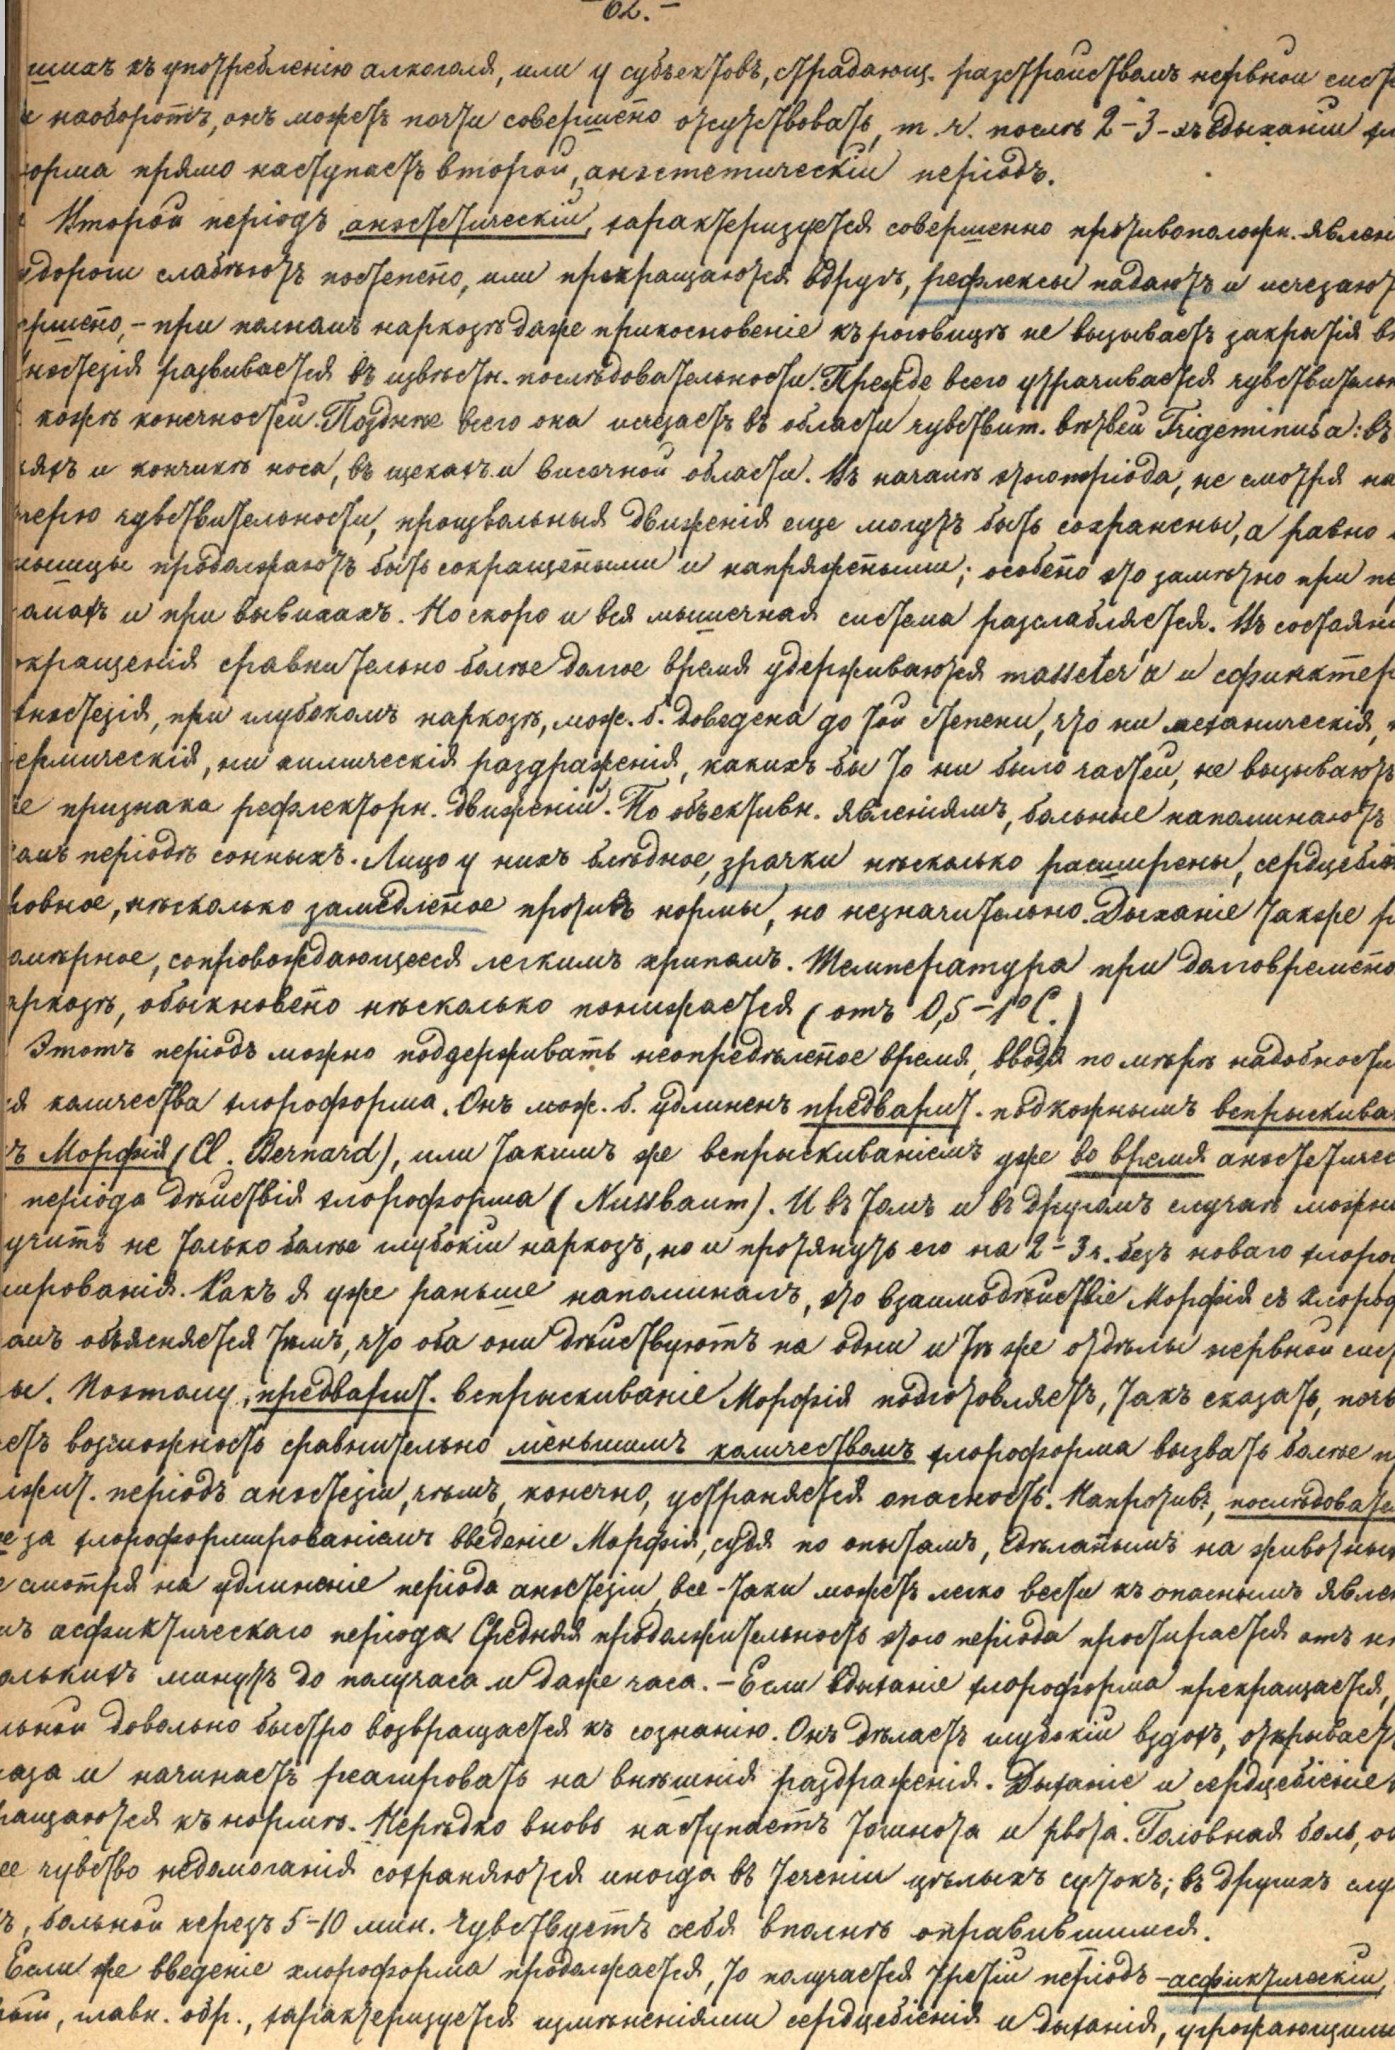 — 62. —
шихъ къ употребленію алкоголя, или у субъектовъ, страдающ. разстройствомъ нервной сист
и наоборотъ, онъ можетъ почти совершено отсутствовать, т. ч. послѣ 2-3-хъ вдыханій хл
орма прямо наступаетъ второй, анэстетическій періодъ.
Второй періодъ, анэстетическій, характеризуется совершенно противоположн. явлен
удороги слабѣютъ постепено, или прекращаются вдругъ, рефлексы падаютъ и исчезают
ершено, – при полномъ наркозѣ даже прикосновеніе къ роговицѣ не вызываетъ закрытія в
нэстезія развивается въ извѣстн. послѣдовательности. Прежде всего утрачивается чувствительн
кожѣ конечностей. Позднѣе всего она исчезаетъ въ области чувствит. вѣтвей Trigeminus'a: въ
кахъ и кончикѣ носа, въ щекахъ и височной области. Въ началѣ этого періода, не смотря на
терю чувствительности, произвольныя движенія еще могутъ быть сохранены, а равно
мышцы продолжаютъ быть сокращеными и напряжеными; особено это замѣтно при пе
омахъ и при вывихахъ. Но скоро и вся мышечная система разслабляется. Въ состояни
окращенія сравнительно болѣе долгое время удерживаются masseter'ы и сфинктер
анэстезія, при глубокомъ наркозѣ, мож. б. доведена до той степени, что ни механическія,
ермическія, ни химическія раздраженія, какихъ бы то ни было частей, не вызываютъ
е признака рефлекторн. движеній. По объективн. явленіямъ, больные напоминаютъ
омъ періодѣ сонныхъ. Лицо у нихъ блѣдное, зрачки нѣсколько расширены, сердцебіе
ровное, нѣсколько замедленое противъ нормы, но незначительно. Дыханіе также р
омѣрное, сопровождающееся легкимъ храпомъ. Температура при долговремено
аркозѣ, обыкновено нѣсколько понижается (отъ 0,5-1° C.)
Этотъ періодъ можно поддерживать неопредѣленое время, вводя по мѣрѣ надобности
я количества хлороформа. Онъ мож. б. удлиненъ предварит. подкожнымъ впрыскива
ъ Морфія (Cl. Bernard), или такимъ же впрыскиваніемъ уже во время анэстетичес
періода дѣйствія хлороформа (Nussbaum). И въ томъ и въ другомъ случаѣ можн
учить не только болѣе глубокій наркозъ, но и протянуть его на 2-3 ч. безъ новаго хлоро
мированія. Какъ я уже раньше напоминалъ, что взаимодѣйствіе Морфія съ Хлороф
омъ объясняется тѣмъ, что оба они дѣйствуютъ на одни и тѣ же отдѣлы нервной сист
ы. Поэтому, предварит. впрыскиваніе Морфія подготовляетъ, такъ сказать, почв
етъ возможность сравнительно меньшимъ количествомъ хлороформа вызвать болѣе п
лжит. періодъ анэстезіи, чѣмъ, конечно, устраняется опасность. Напротивъ, послѣдовате
е за хлороформированіемъ введеніе Морфія, судя по опытамъ, сдѣланымъ на животных
е смотря на удлиненіе періода анэстезіи, все-таки можетъ легко вести къ опаснымъ явле
мъ асфиктическаго періода. Средняя продолжительность этого періода простирается отъ нѣ
олькихъ минутъ до получаса и даже часа. – Если вдыханіе хлороформа прекращается,
льной довольно быстро возвращается къ сознанію. Онъ дѣлаетъ глубокій вздохъ, открываетъ
аза и начинаетъ реагировать на внѣшнія раздраженія. Дыханіе и сердцебіеніе
ращаются къ нормѣ. Нерѣдко вновь наступаетъ тошнота и рвота. Головная боль, об
ее чувство недомоганія сохраняются иногда въ теченіи цѣлыхъ сутокъ; въ другихъ слу
ъ, больной черезъ 5-10 мин. чувствуетъ себя вполнѣ оправившимся.
Если же введеніе хлороформа продолжается, то получается третій періодъ – асфиктическій,
рый, главн. обр., характеризуется измѣненіями сердцебіенія и дыханія, угрожающими